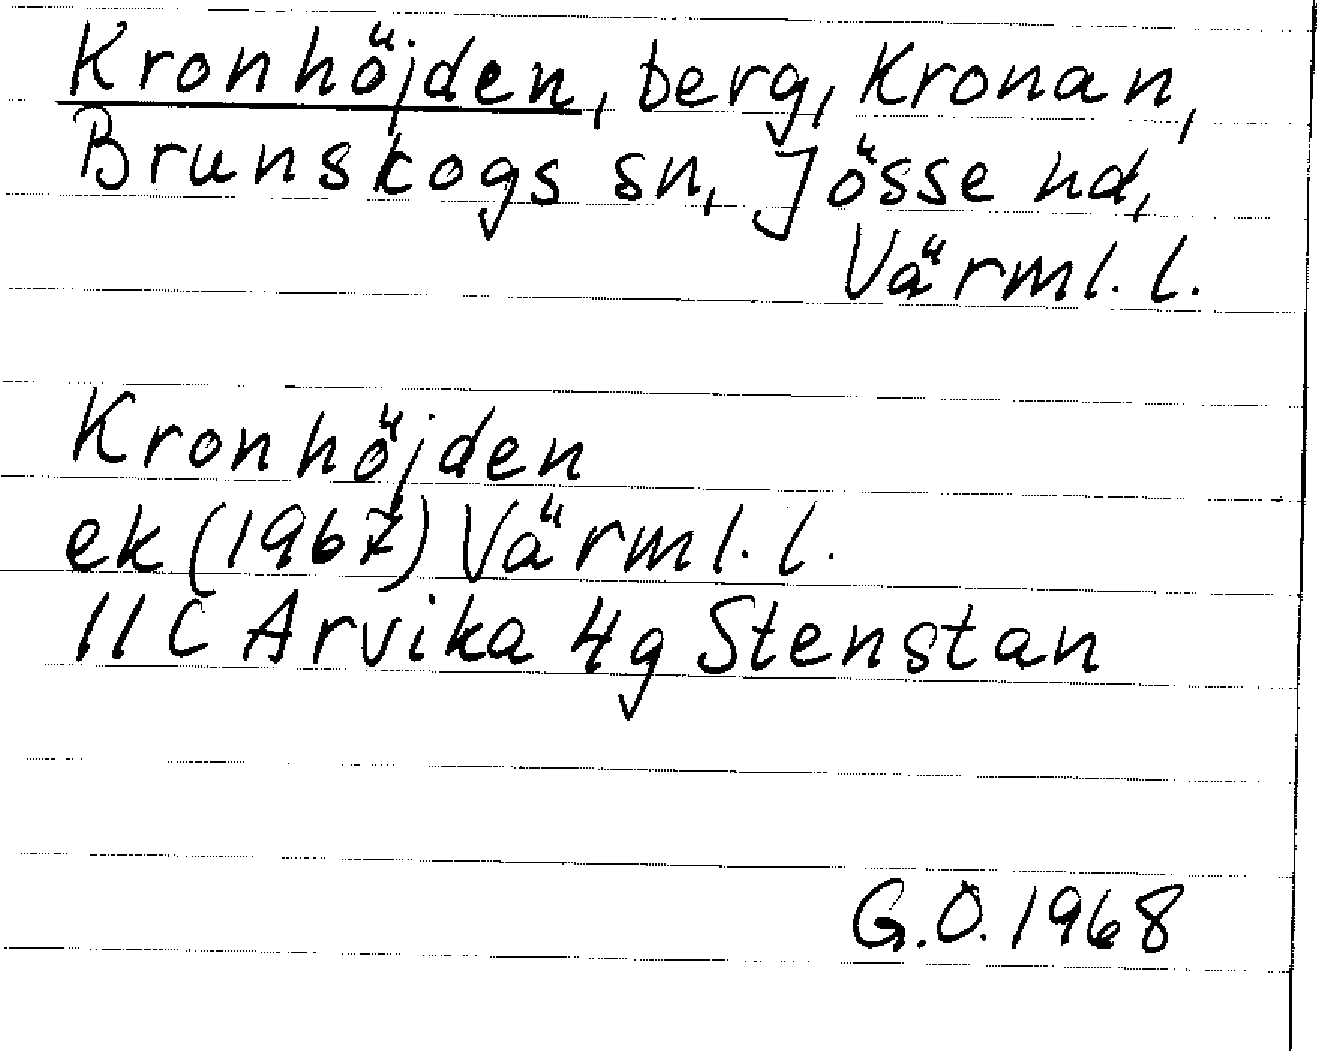 Kronhöjden, berg, Kronan,
Brunskogs sn, Jösse hd,
Värml. l.
Kronhöjden
ek (1967) Värml. l.
11C Arvika 4g Stenstan
G.O. 1968